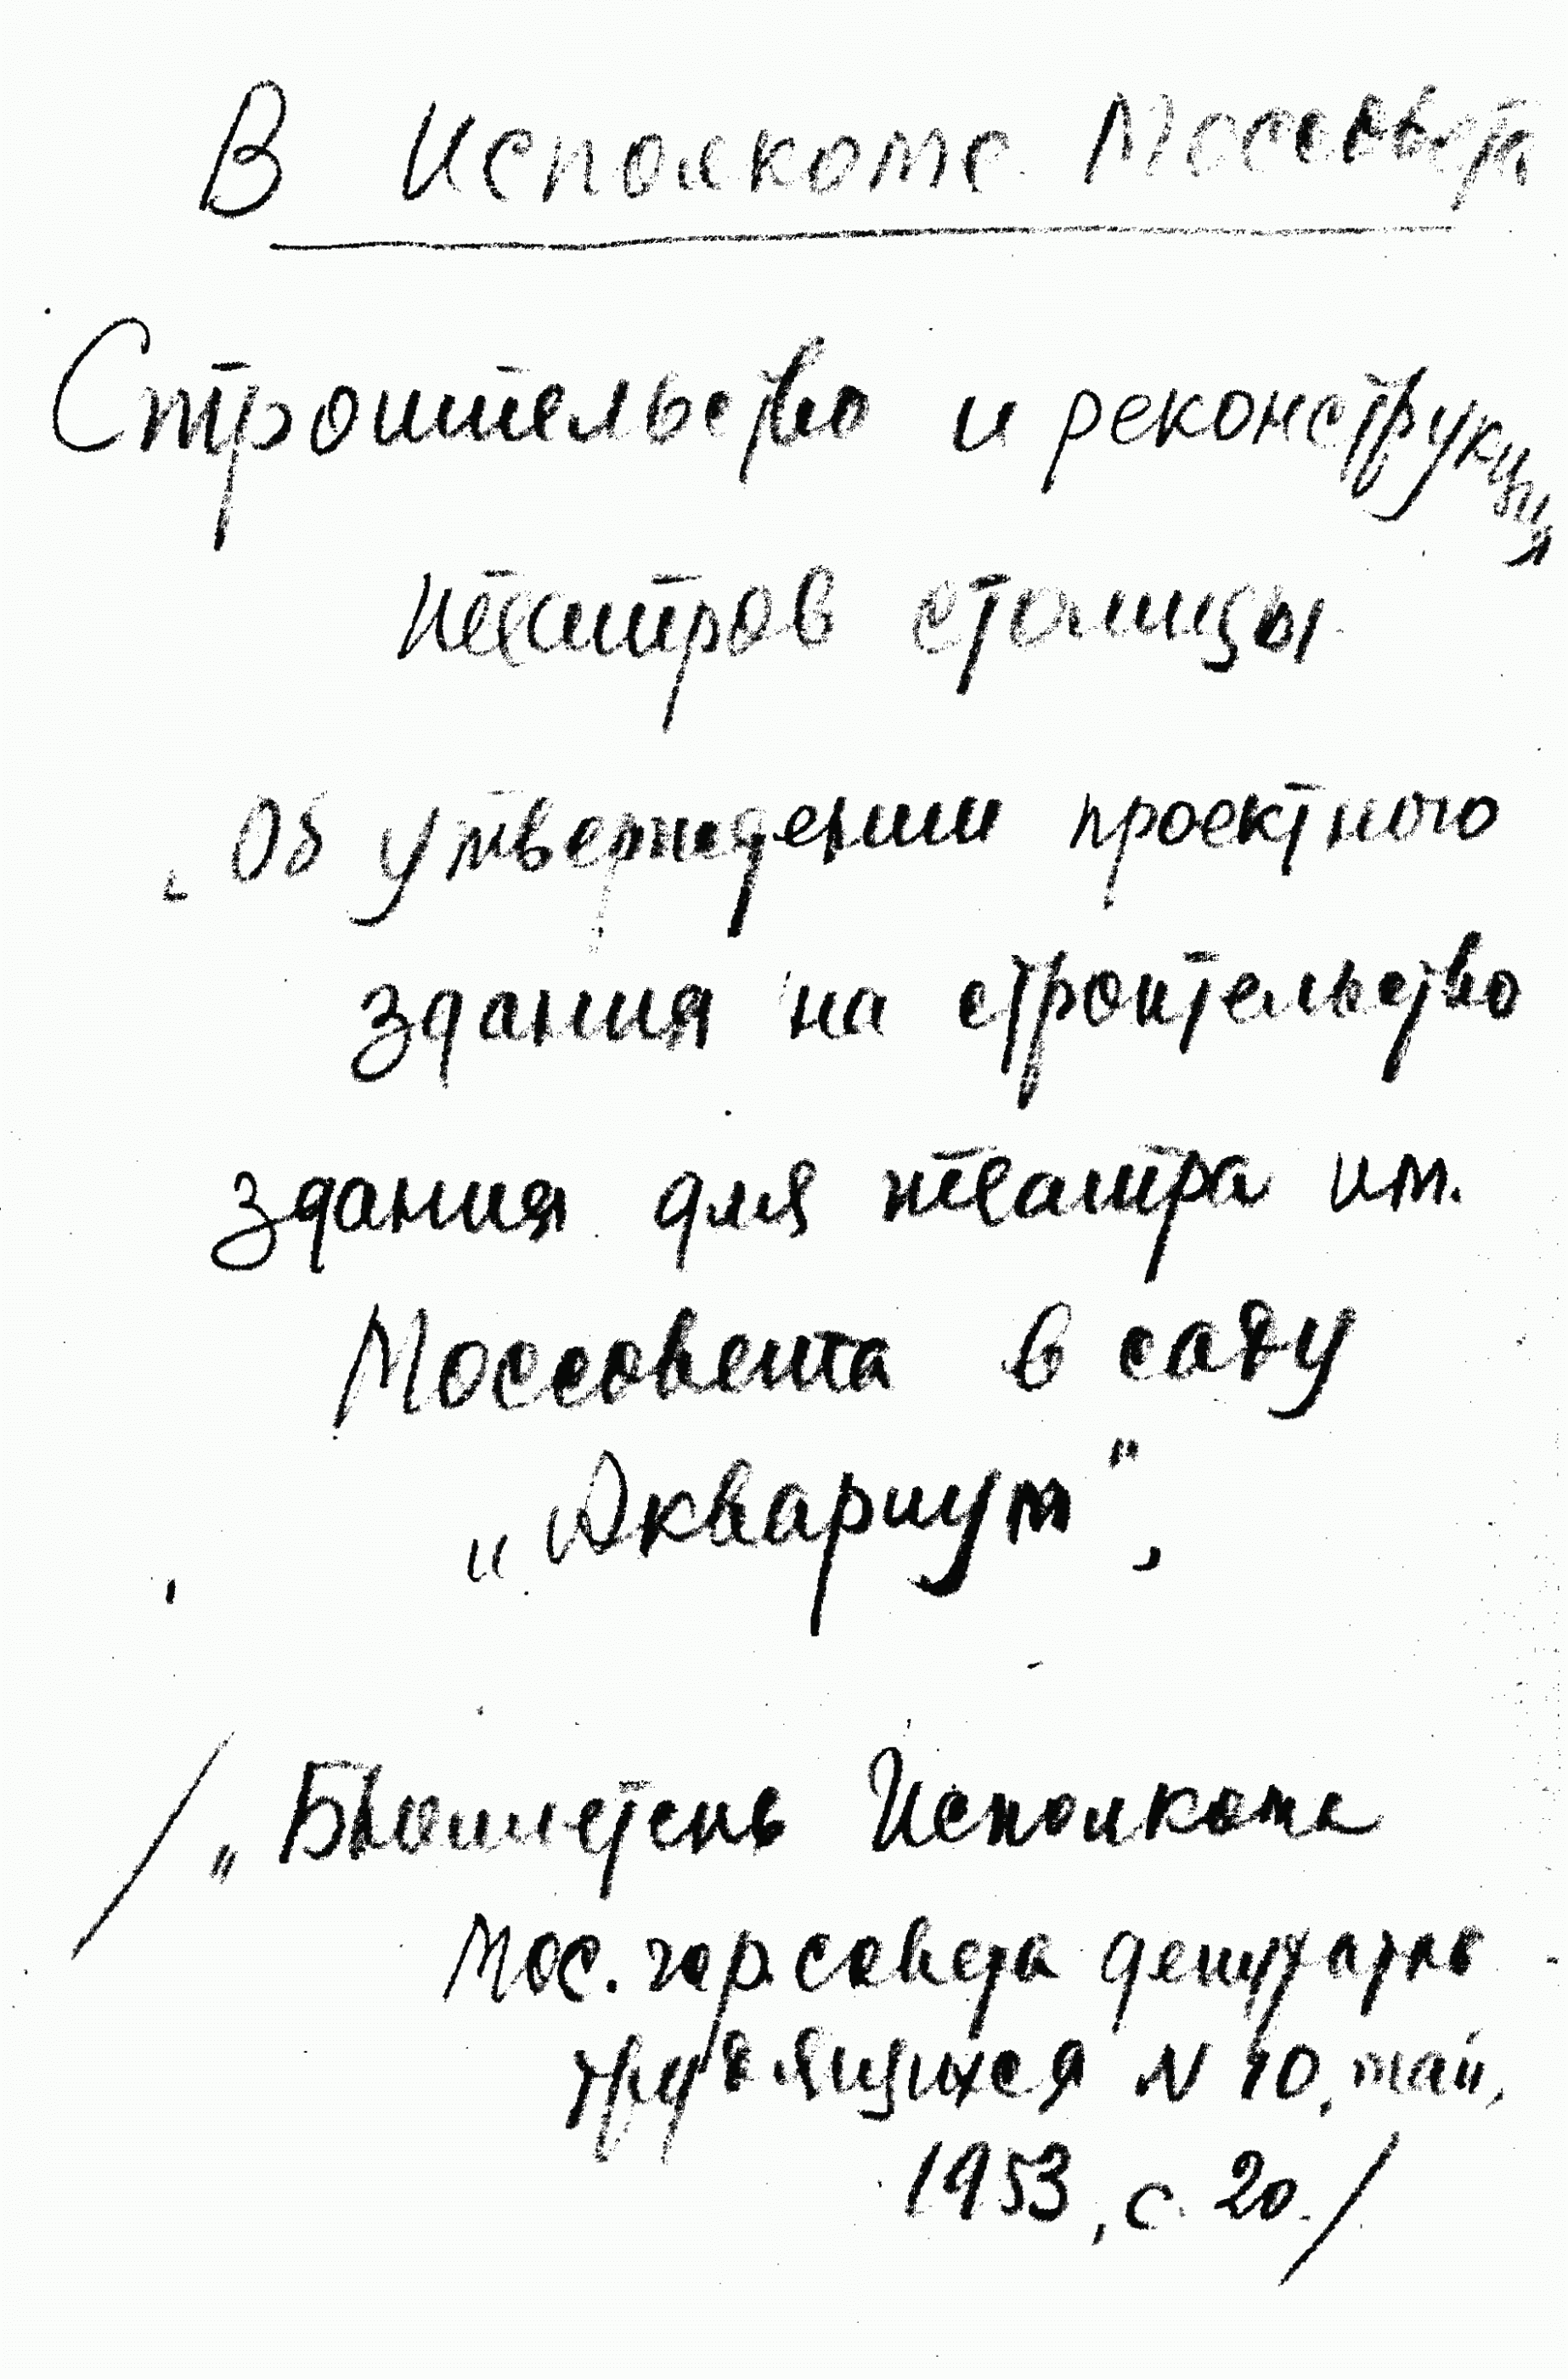 В Исполкоме Моссовета
Строительство и реконструкция
театров столицы
„Об утверждении проектного
здания на строительство
здания для театра им.
Моссовета в саду
„Аквариум",
/„Бюллетень Исполкома
Мос. гор. совета депутатов
трудящихся N 10, май,
1953, с. 20./